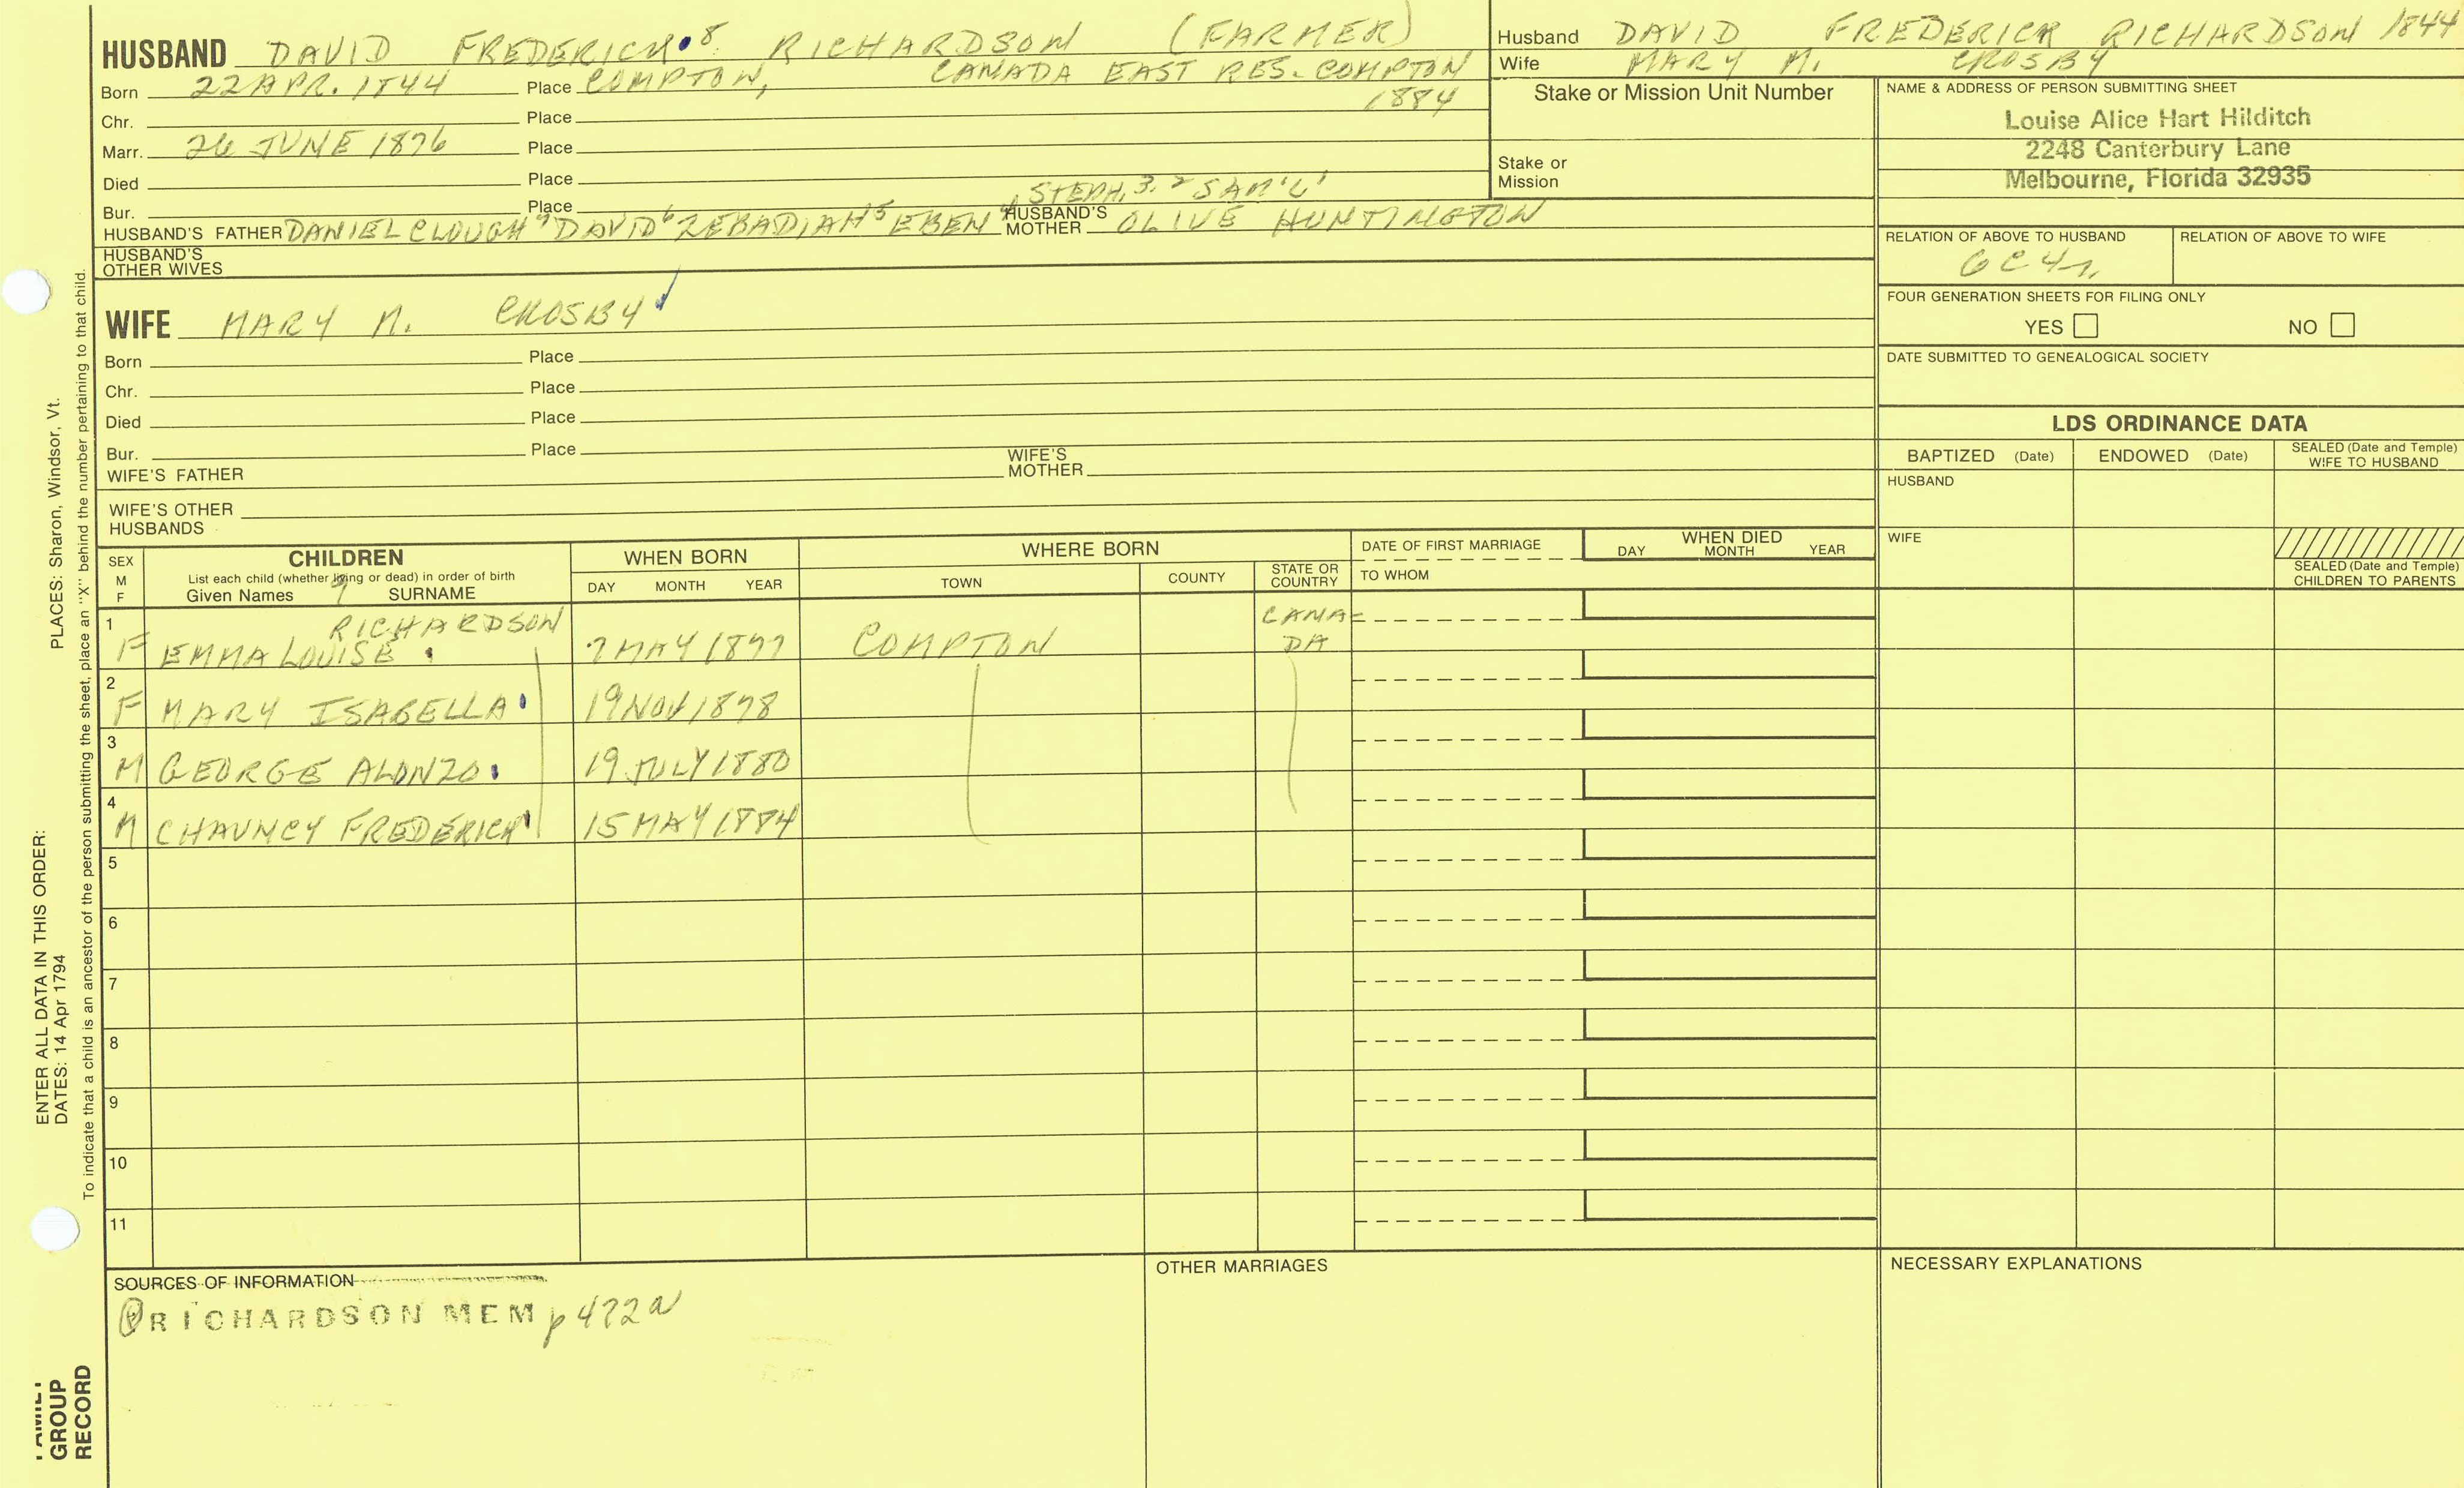 HUSBAND DAVID FREDERICK 8 RICHARDSON (FARMER)
Born 22 APR. 1844 Place COMPTON, CANADA EAST RES. COMPTON
1884
Chr. Place
Marr. 26 JUNE 1876 Place
Died Place
Bur. Place
STEPH. 3, 2 SAM'L 1
HUSBAND'S FATHER DANIEL CLOUGH 7 DAVID 6 ZEBADIAH 5 EBEN 4 HUSBAND'S MOTHER OLIVE HUNTINGTON
HUSBAND'S
OTHER WIVES
Husband DAVID FREDERICK RICHARDSON 1844
Wife MARY M. CROSBY
Stake or Mission Unit Number
Stake or
Mission
NAME & ADDRESS OF PERSON SUBMITTING SHEET
Louise Alice Hart Hilditch
2248 Canterbury Lane
Melbourne, Florida 32935
RELATION OF ABOVE TO HUSBAND RELATION OF ABOVE TO WIFE
6C4r.
FOUR GENERATION SHEETS FOR FILING ONLY
YES NO
DATE SUBMITTED TO GENEALOGICAL SOCIETY
WIFE MARY M. CROSBY
Born Place
Chr. Place
Died Place
Bur. Place
WIFE'S FATHER WIFE'S MOTHER
WIFE'S OTHER
HUSBANDS
LDS ORDINANCE DATA
BAPTIZED (Date) ENDOWED (Date) SEALED (Date and Temple)
WIFE TO HUSBAND
HUSBAND
WIFE
SEALED (Date and Temple)
CHILDREN TO PARENTS
SEX
M
F
CHILDREN
List each child (whether living or dead) in order of birth
Given Names 9 SURNAME
WHEN BORN
DAY MONTH YEAR
WHERE BORN
TOWN COUNTY STATE OR
COUNTRY
DATE OF FIRST MARRIAGE
TO WHOM
WHEN DIED
DAY MONTH YEAR
1 RICHARDSON CANA-
F EMMA LOUISE 7 MAY 1877 COMPTON DA
2
F MARY ISABELLA 19 NOV 1878
3
M GEORGE ALONZO 19 JULY 1880
4
M CHAUNCY FREDERICK 15 MAY 1884
5
6
7
8
9
10
11
SOURCES OF INFORMATION
RICHARDSON MEM p 472
OTHER MARRIAGES
NECESSARY EXPLANATIONS
ENTER ALL DATA IN THIS ORDER:
DATES: 14 Apr 1794 PLACES: Sharon, Windsor, Vt.
To indicate that a child is an ancestor of the person submitting the sheet, place an "X" behind the number pertaining to that child.
FAMILY
GROUP
RECORD